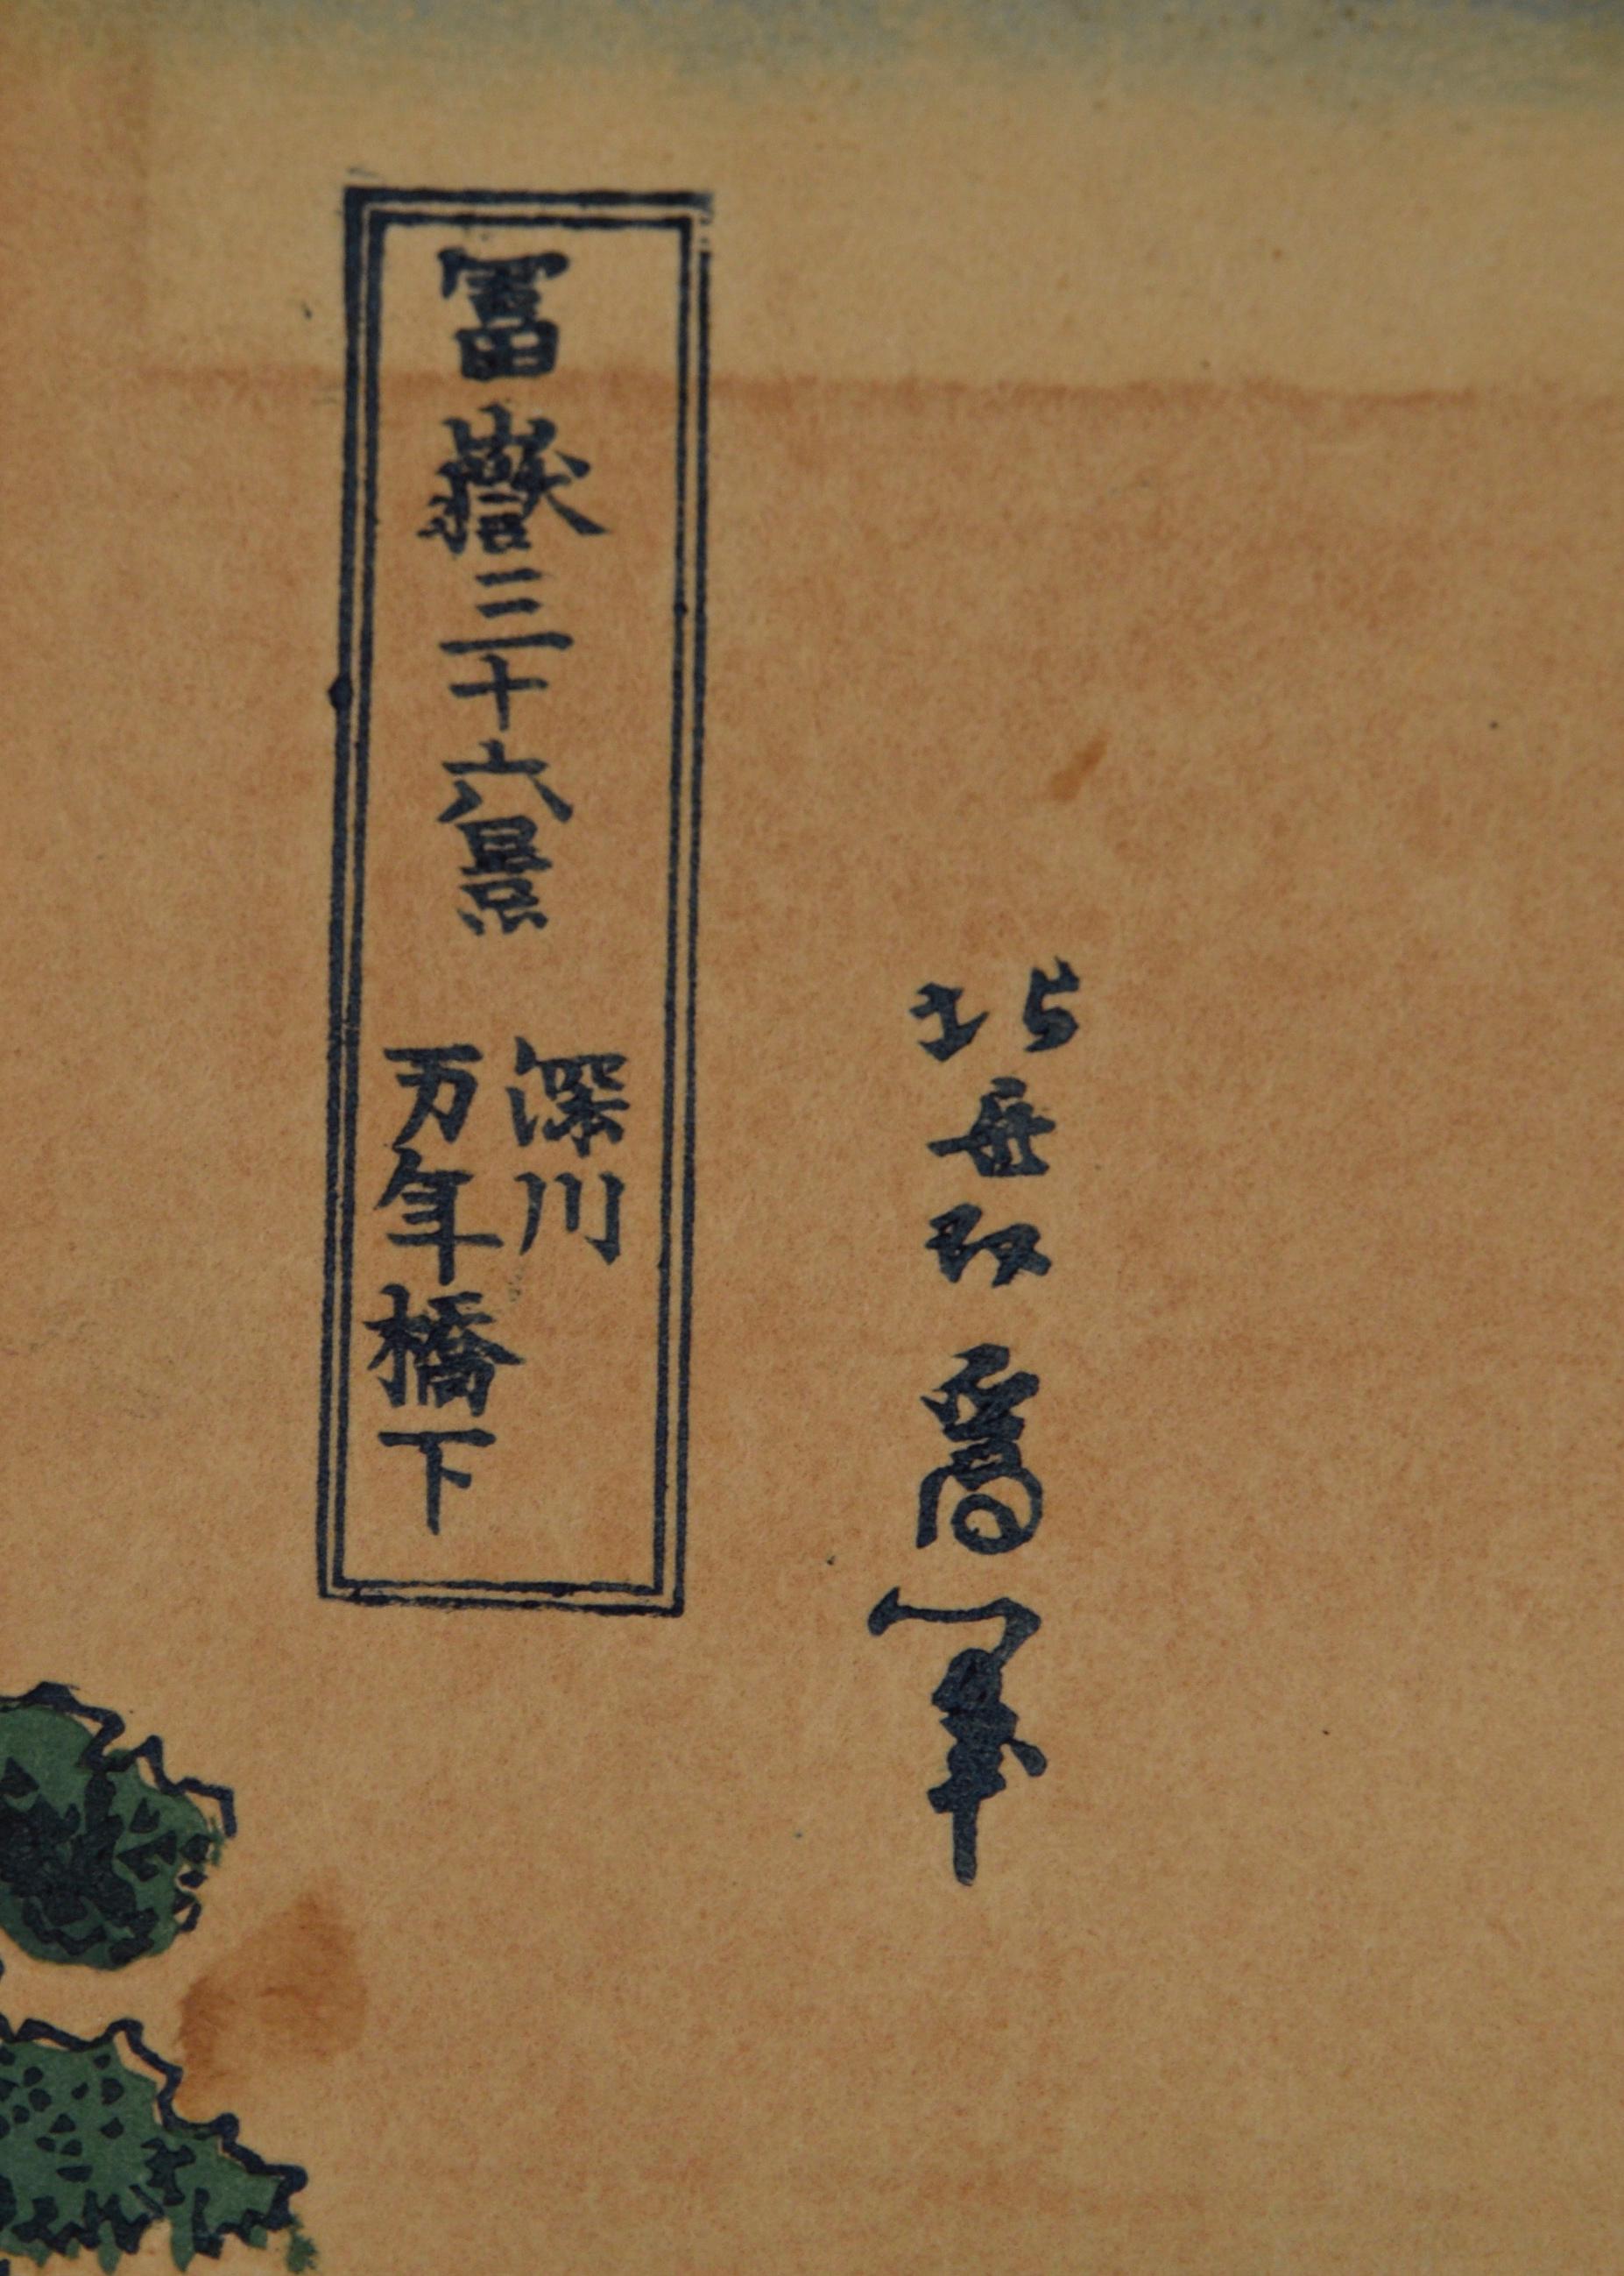 冨嶽三十六景
深川
万年橋下
北斎改爲一筆